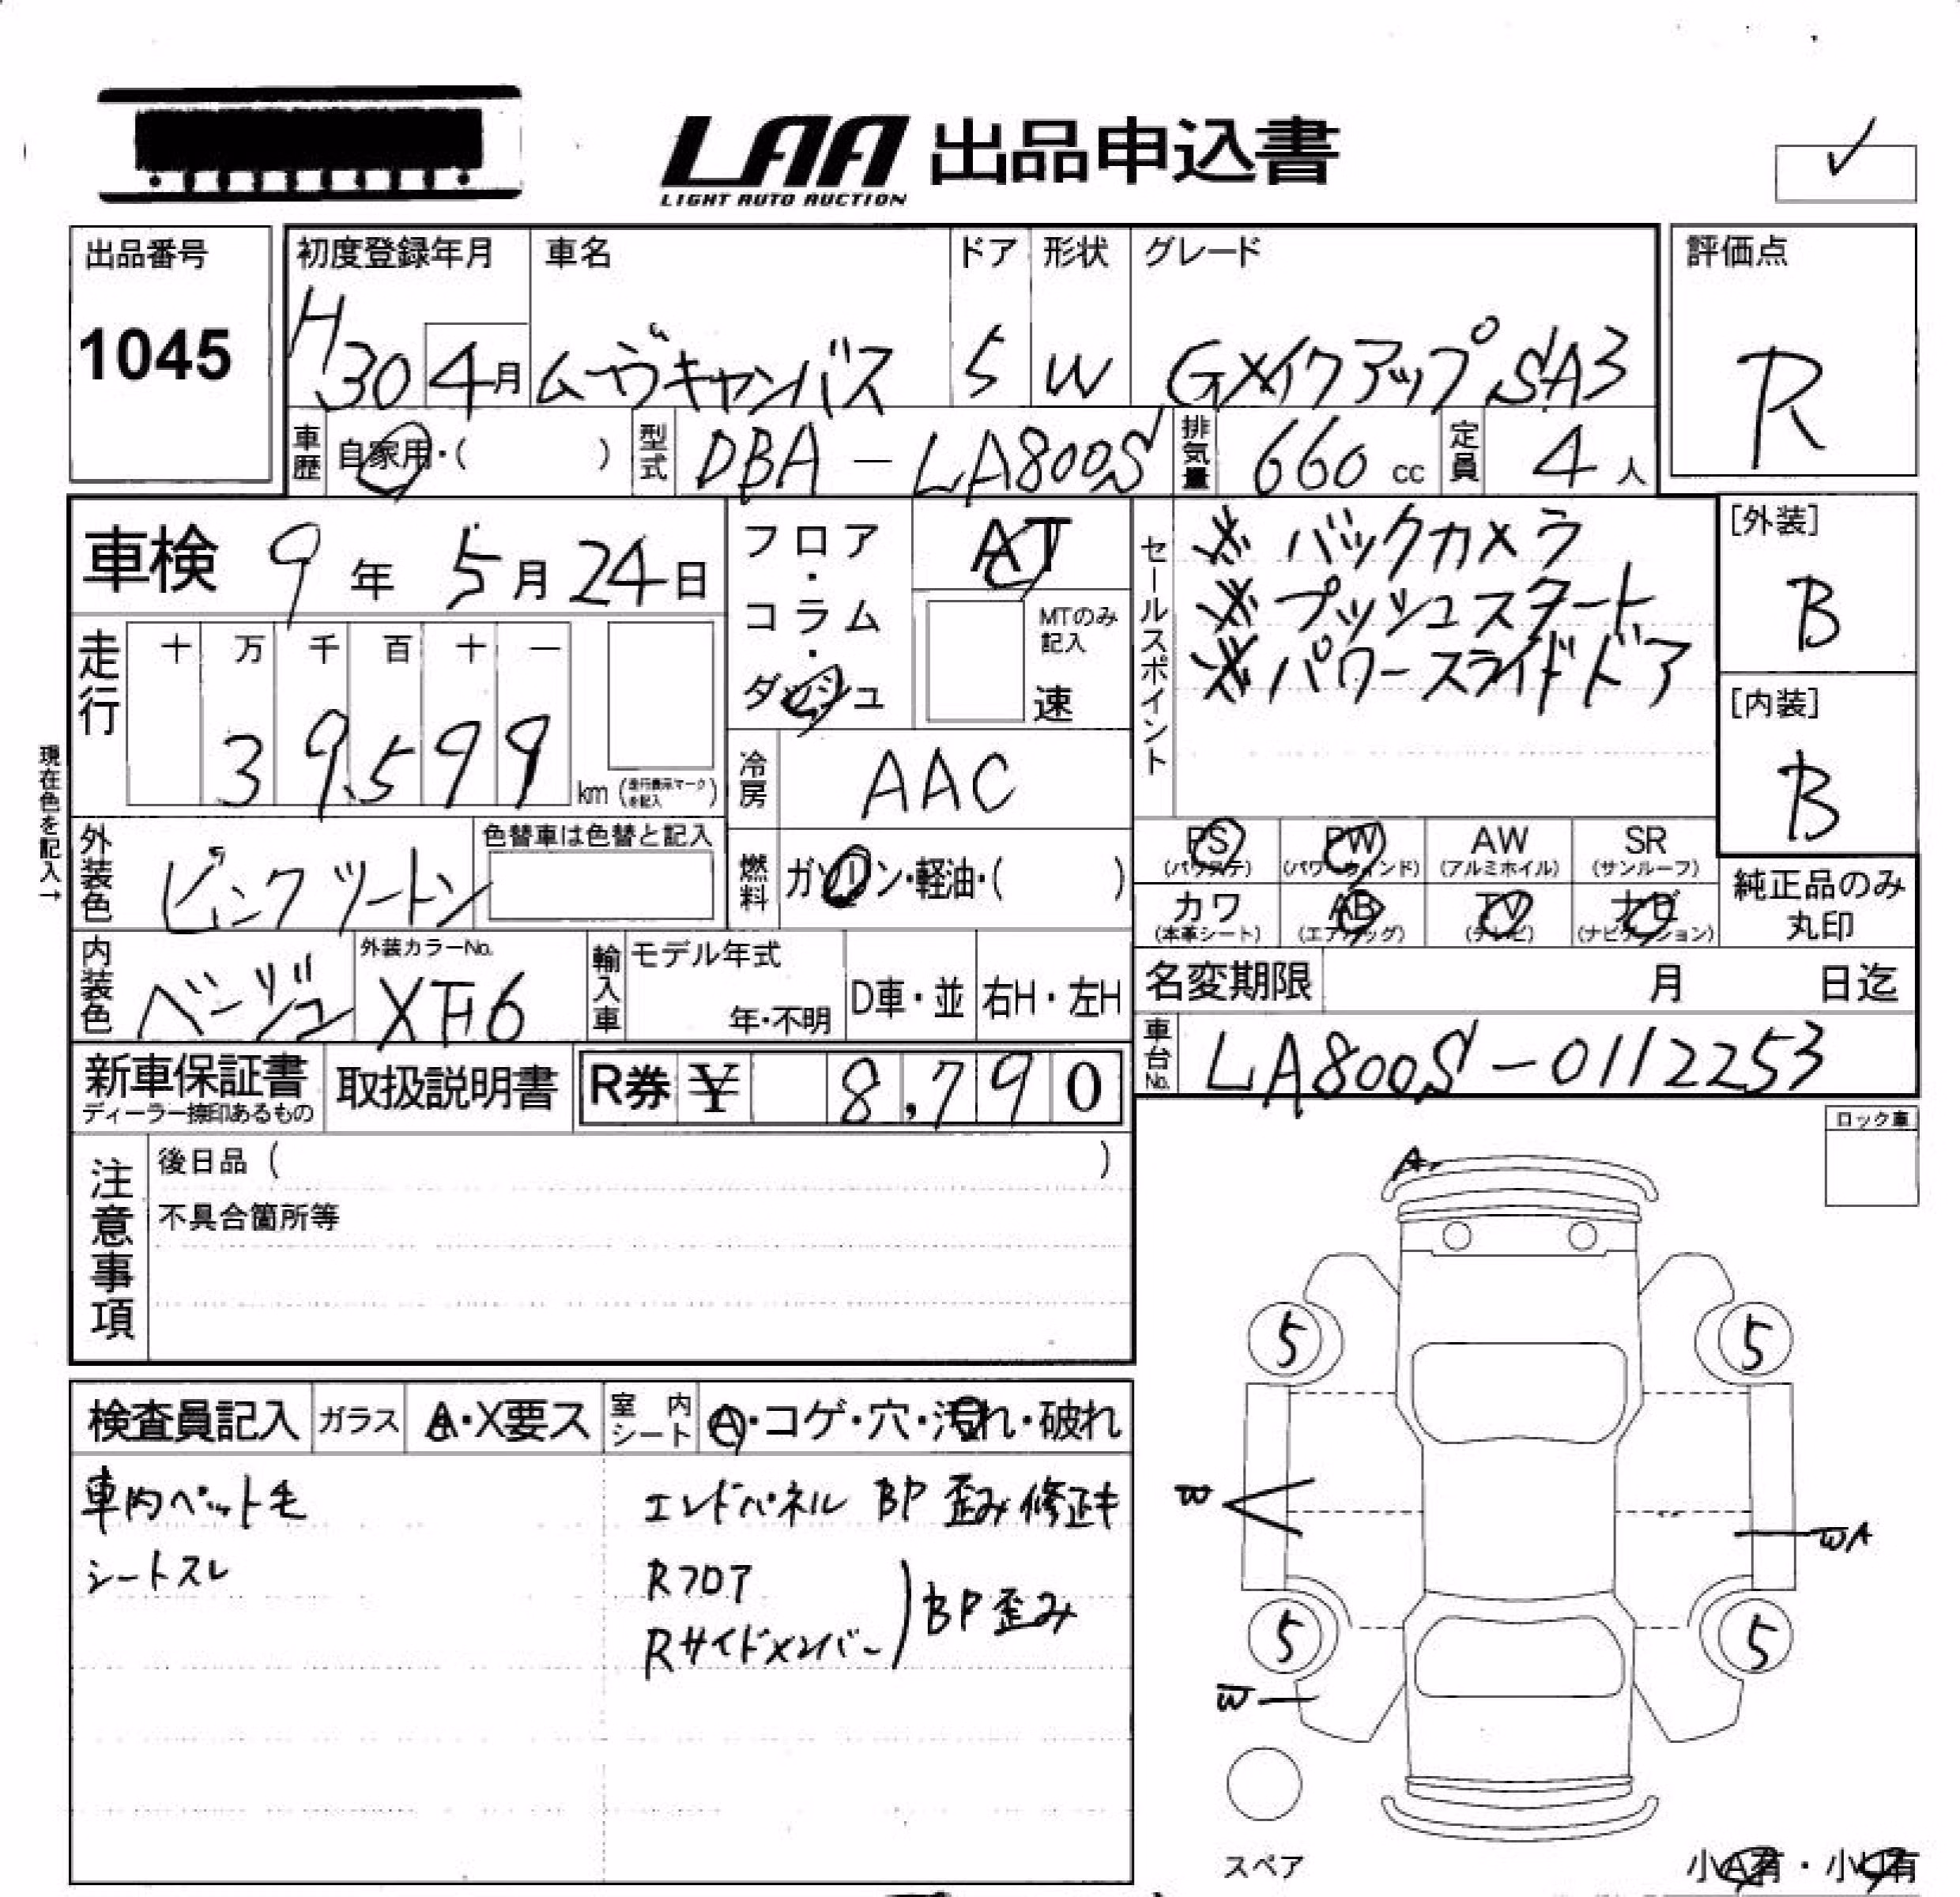 LAA 出品申込書
LIGHT AUTO AUCTION
✓
出品番号
1045
初度登録年月
H30 4月
車名
ムーヴキャンバス
ドア
5
形状
W
グレード
GメイクアップSA3
評価点
R
車歴 自家用・( )
型式 DBA-LA800S
排気量 660 cc
定員 4 人
車検 9年 5月 24日
フロア・コラム・ダッシュ
AT
MTのみ記入
速
セールスポイント
※ バックカメラ
※ プッシュスタート
※ パワースライドドア
[外装]
B
[内装]
B
走行
十 万 千 百 十 一
39,599 km (走行表示マークを記入)
冷房 AAC
現在色を記入→
外装色 ピンクツートン
色替車は色替と記入
燃料 ガソリン・軽油・( )
PS (パワステ) PW (パワーウィンド) AW (アルミホイル) SR (サンルーフ)
カワ (本革シート) AB (エアバッグ) TV (テレビ) ナビ (ナビゲーション)
純正品のみ丸印
内装色 ベージュ
外装カラーNo.
XF6
輸入車
モデル年式
年・不明
D車・並
右H・左H
名変期限 月 日迄
車台No. LA800S-0112253
新車保証書
ディーラー捺印あるもの
取扱説明書
R券 ¥ 8,790
ロック車
注意事項
後日品 ( )
不具合箇所等
検査員記入 ガラス A・X要ス 室内シート A・コゲ・穴・汚れ・破れ
車内ペット毛
シートスレ
エンドパネル BP 歪み修正キ
Rフロア
Rサイドメンバー
BP歪み
A
5 5
W
WA
5 5
W
スペア
小A有・小U有